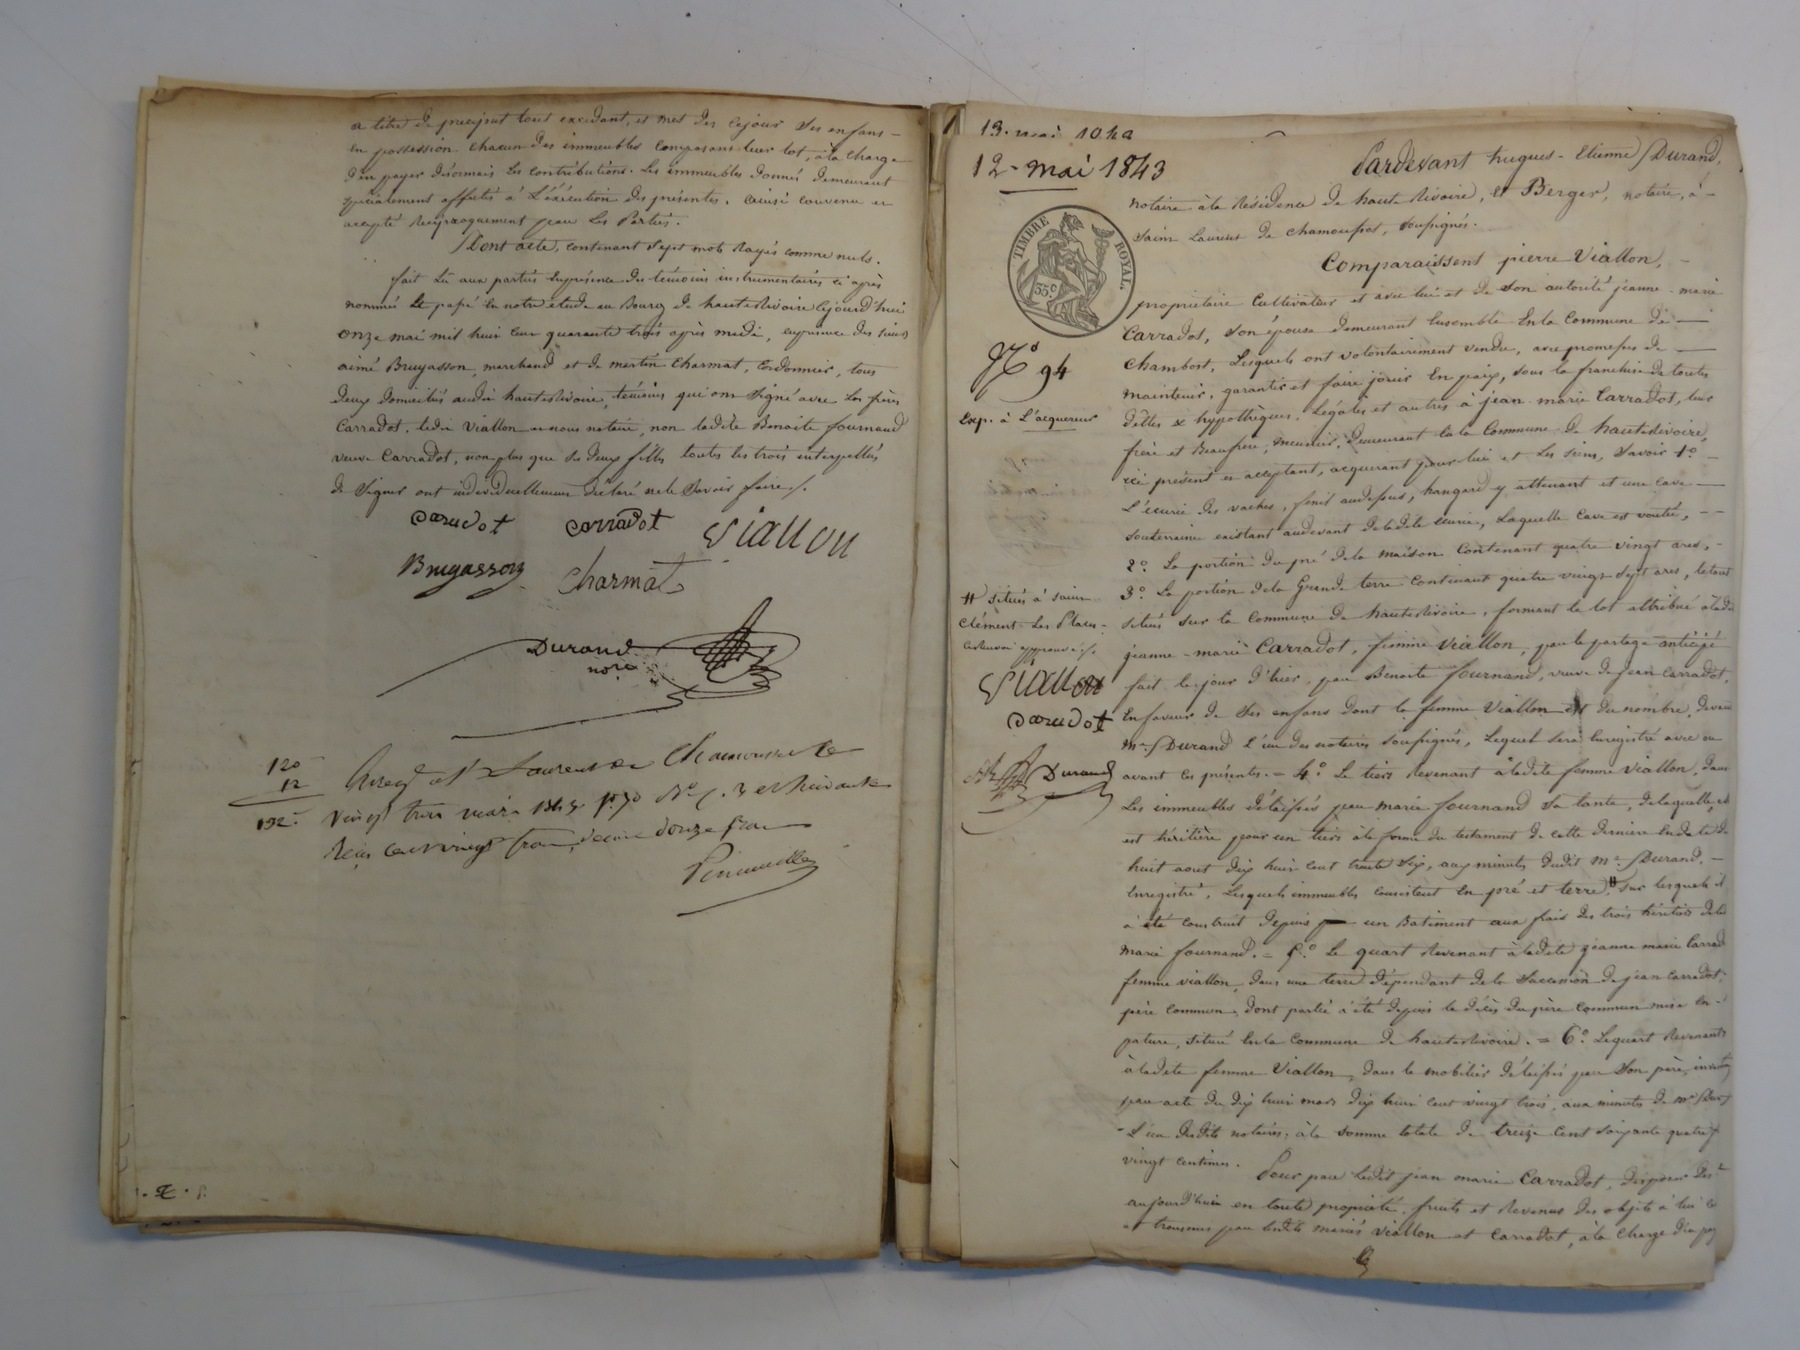 a titre de preciput tout excedant, et met des cejour ses enfans -
en possession chacun des immeubles composant leur lot, à la charge
d'en payer désormais les contributions. Les immeubles donnés demeurant
specialement affectés à L'éxécution des présentes. Ainsi convenu et
accepté reciproquement par les Parties.
Dont acte, contenant sept mots rayés comme nuls.
fait lu aux parties enprésence des témoins instrumentaires ci après
nommés le passé en notre étude au Bourg de hauterivoire cejourd'hui
onze mai mil huit cent quarante trois après midi, enprésence des sieurs
aimé Bruyasson, marchand et de martin Charmat, Cordonnier, tous
deux domiciliés audit hauterivoire, témoins qui ont signé avec les frères
Carradot, ledit Viallon et nous notaire, non ladite Benoite fournand
veuve Carradot, non plus que ses deux filles toutes les trois interpellés
de signer ont individuellement declaré ne le savoir faire /.
Carradot Carradot Viallon
Bruyasson Charmat
Durand
nore
120
12
132
Enreg à St Laurent de Chamousset le
vingt trois mai 1843
Reçu cent vingt francs, decime douze francs
- . 2 . 8.
13. mai 10 h a
12 - mai 1843
Pardevant hugues - Etienne Durand,
notaire à la Résidence de haute Rivoire, et Berger, notaire, à -
Saint Laurent de Chamousset, soussignés.
TIMBRE ROYAL.
35 c
Comparaissent pierre Viallon, -
propriétaire Cultivateur et avec lui et de son autorité jeanne - marie
Carradot, son épouse demeurant Ensemble En la Commune de —
Chambost, Lesquels ont volontairement vendu, avec promesses de —
N° 94
maintenir, garantir et faire jouir En paix, sous la franchise de toutes
Exp. à L'acquereur
dettes & hypothèques, Légales et autres à jean - marie Carradot, leur
frère et Beaufrère, meunier, demeurant En la Commune de hauterivoire,
ici présent et acceptant, acquerant pour lui et les siens, savoir 1.° -
L'écurie des vaches, fenil audessus, hangard y attenant et une cave —
souterraine existant audevant de ladite écurie, Laquelle Cave est voutée, - -
2.° La portion du pré de la maison Contenant quatre vingt ares, -
3.° La portion de la Grande terre contenant quatre vingt Sept ares, le tout
# situés à Saint
Clément - Les Places -
ce renvoi approuvé /.
Viallon
Carradot
Durand
situés sur la Commune de hauterivoire, formant le lot attribué à ladite
jeanne - marie Carradot, femme Viallon, par le partage anticipé
fait le jour d'hier, par Benoite fournand, veuve de Jean Carradot,
En faveur de ses enfans dont la femme Viallon est du nombre, devant
Me. Durand l'un des notaires soussignés, Lequel sera Enregistré avec ou
avant les présentes. = 4.° Le tiers Revenant à ladite femme Viallon, dans
Les immeubles délaissés par marie fournand sa tante, de laquelle elle
est héritière pour un tiers à la forme du testament de cette derniere En date du
huit aout dix huit cent trente six, aux minutes dudit Me. Durand, -
Enregistré, Lesquels immeubles consistent En pré et terre # sur lesquels il
a été construit depuis un Batiment aux frais des trois héritiers de la
marie fournand. = 5.° Le quart Revenant à ladite jeanne marie Carrad
femme viallon, dans une terre dépendant de la Succession de jean Carradot
père commun, dont partie a été depuis le décès du père commun mise en -
pature, située En la Commune de hauterivoire. = 6.° Le quart Revenant
à ladite femme Viallon, dans le mobilier délaissé par son père, inventorié
par acte du dix huit mars dix huit cent vingt trois, aux minutes de Me. Dur
L'un desdits notaires, à la somme totale de treize Cent soixante quatre f
vingt centimes.
Pour par ledit jean marie Carradot, disposer des
aujourd'hui en toute propriété, fruits et Revenus des objets à lui
et transmis par lesdits mariés Viallon et Carradot, à la charge d'en pay